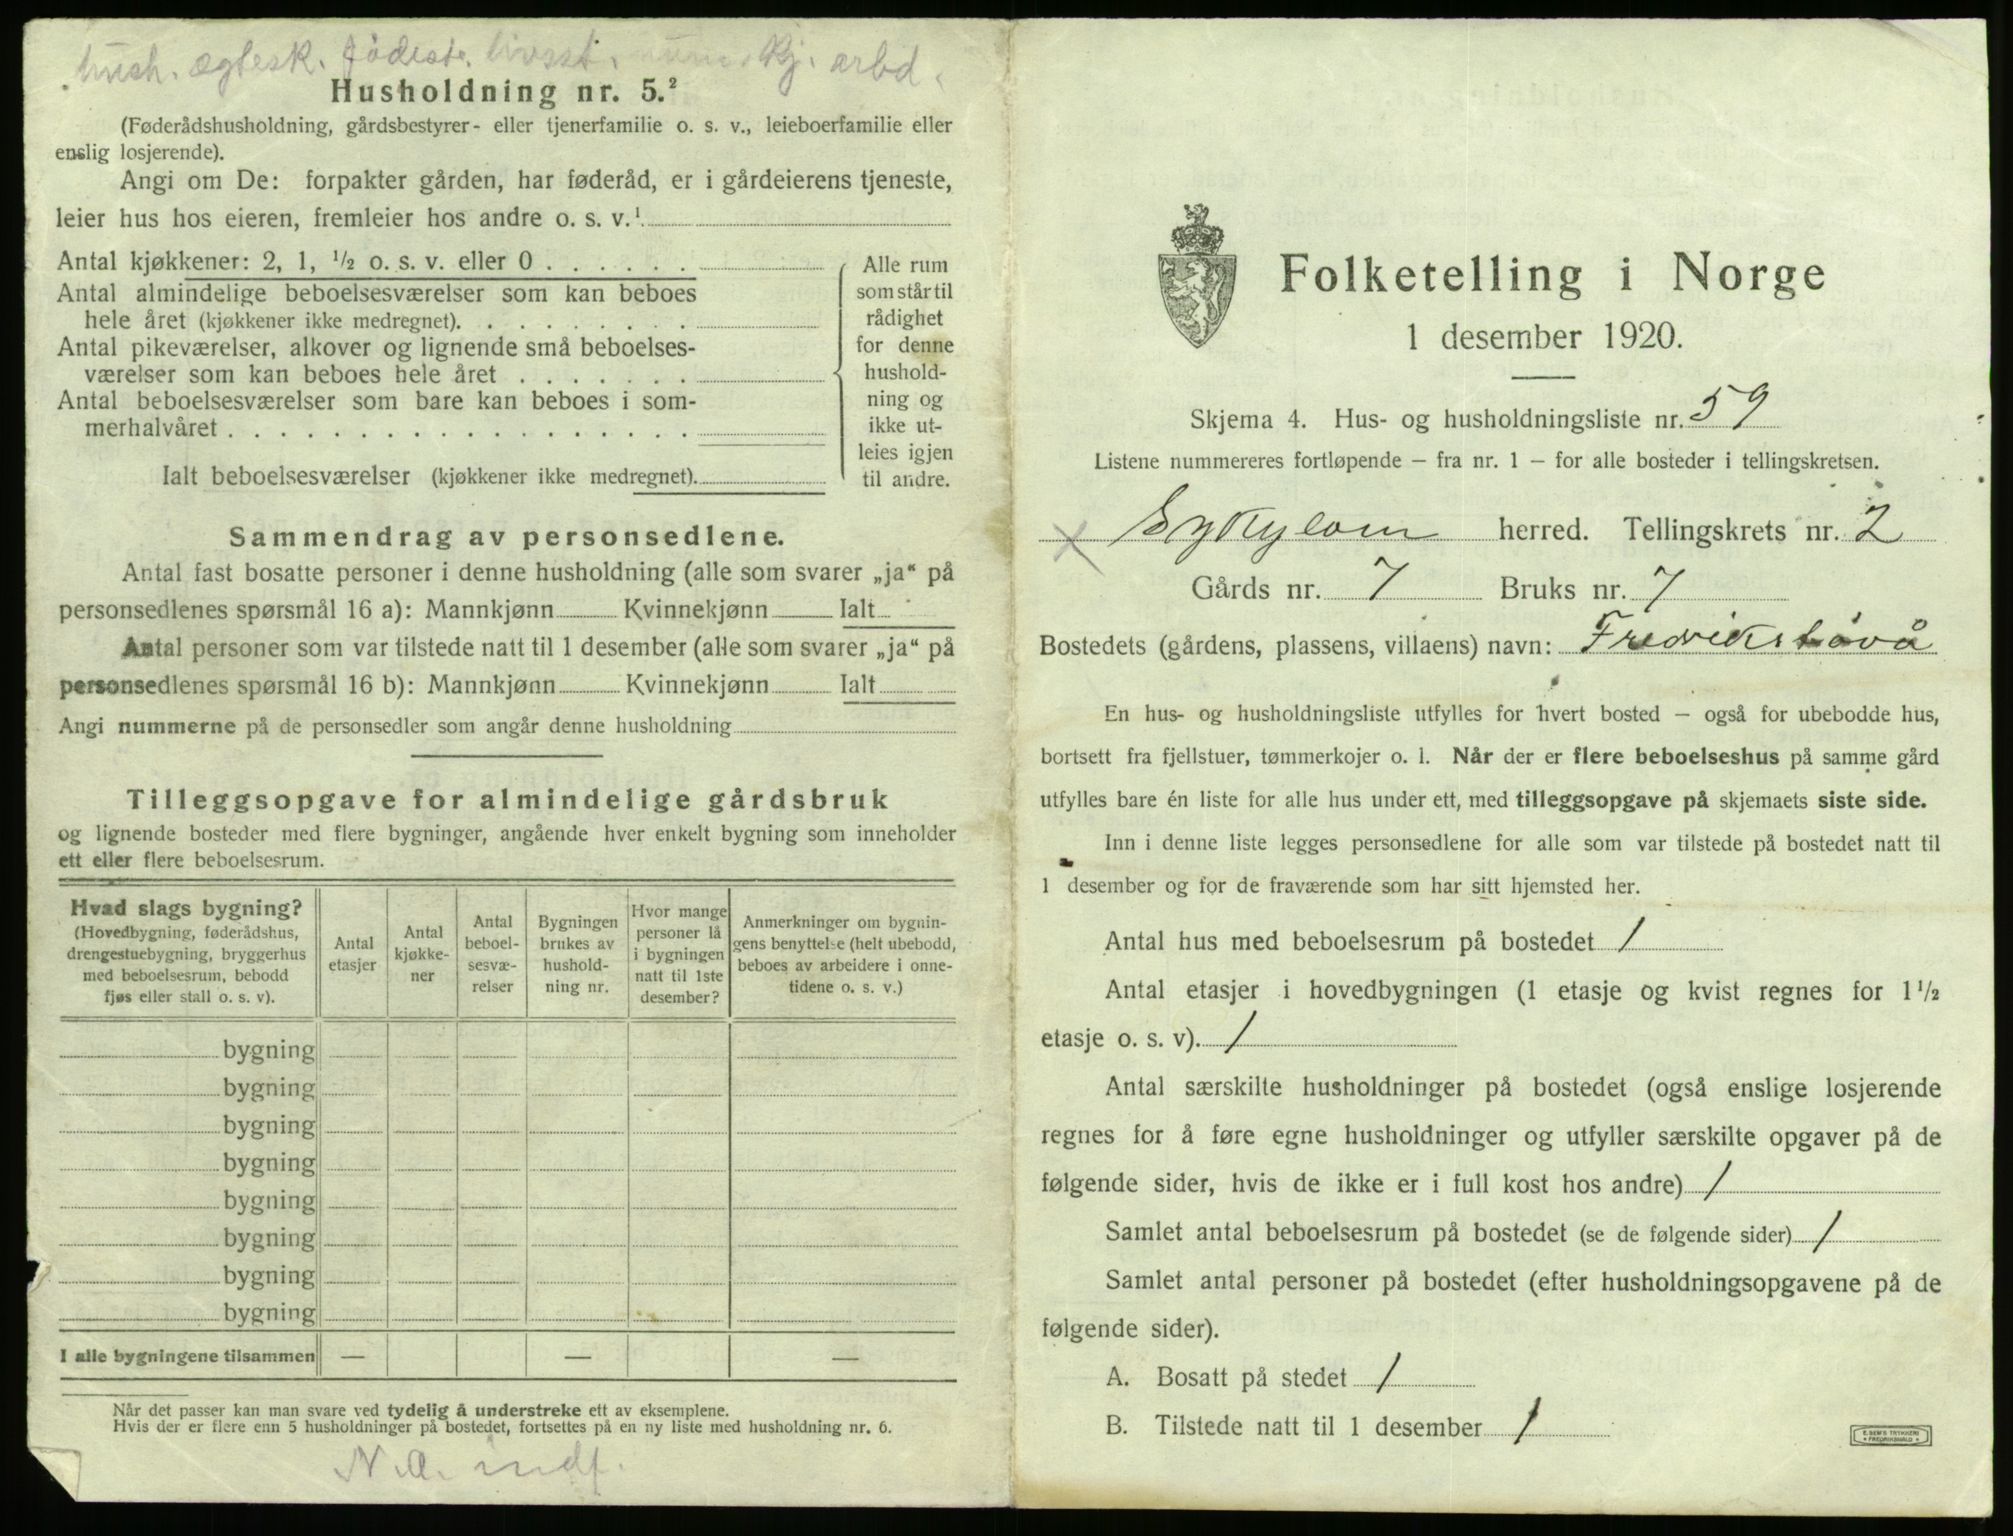 hush. ægtesk. fødest. livsst. num. kj. arbd.
Husholdning nr. 5.²
(Føderådshusholdning, gårdsbestyrer- eller tjenerfamilie o. s. v., leieboerfamilie eller
enslig losjerende).
Angi om De: forpakter gården, har føderåd, er i gårdeierens tjeneste,
leier hus hos eieren, fremleier hos andre o. s. v.¹
Antal kjøkkener: 2, 1, ½ o. s. v. eller 0 . . . . . .
Antal almindelige beboelsesværelser som kan beboes
hele året (kjøkkener ikke medregnet). . . . . . . . .
Antal pikeværelser, alkover og lignende små beboelses-
værelser som kan beboes hele året . . . . . . .
Antal beboelsesværelser som bare kan beboes i som-
merhalvåret . . . . . . . . . . . . . . . . . .
Ialt beboelsesværelser (kjøkkener ikke medregnet).
Alle rum
som står til
rådighet
for denne
hushold-
ning og
ikke ut-
leies igjen
til andre.
Sammendrag av personsedlene.
Antal fast bosatte personer i denne husholdning (alle som svarer „ja“ på
personsedlenes spørsmål 16 a): Mannkjønn Kvinnekjønn Ialt
Antal personer som var tilstede natt til 1 desember (alle som svarer „ja“ på
personsedlenes spørsmål 16 b): Mannkjønn Kvinnekjønn Ialt
Angi nummerne på de personsedler som angår denne husholdning
Tilleggsopgave for almindelige gårdsbruk
og lignende bosteder med flere bygninger, angående hver enkelt bygning som inneholder
ett eller flere beboelsesrum.
Hvad slags bygning?
(Hovedbygning, føderådshus,
drengestuebygning, bryggerhus
med beboelsesrum, bebodd
fjøs eller stall o. s. v).
Antal
etasjer
Antal
kjøkke-
ner
Antal
beboel-
sesvæ-
relser
Bygningen
brukes av
hushold-
ning nr.
Hvor mange
personer lå
i bygningen
natt til 1ste
desember?
Anmerkninger om bygnin-
gens benyttelse (helt ubebodd,
beboes av arbeidere i onne-
tidene o. s. v.)
bygning
bygning
bygning
bygning
bygning
bygning
bygning
bygning
I alle bygningene tilsammen — — —
Når det passer kan man svare ved tydelig å understreke ett av eksemplene.
Hvis der er flere enn 5 husholdninger på bostedet, fortsettes på en ny liste med husholdning nr. 6.
N.A. indf.
Folketelling i Norge
1 desember 1920.
Skjema 4. Hus- og husholdningsliste nr. 59
Listene nummereres fortløpende – fra nr. 1 – for alle bosteder i tellingskretsen.
x Sykylven herred. Tellingskrets nr. 2
Gårds nr. 7 Bruks nr. 7
Bostedets (gårdens, plassens, villaens) navn: Fredrikstøvå
En hus- og husholdningsliste utfylles for hvert bosted – også for ubebodde hus,
bortsett fra fjellstuer, tømmerkojer o. l. Når der er flere beboelseshus på samme gård
utfylles bare én liste for alle hus under ett, med tilleggsopgave på skjemaets siste side.
Inn i denne liste legges personsedlene for alle som var tilstede på bostedet natt til
1 desember og for de fraværende som har sitt hjemsted her.
Antal hus med beboelsesrum på bostedet 1
Antal etasjer i hovedbygningen (1 etasje og kvist regnes for 1½
etasje o. s. v). 1
Antal særskilte husholdninger på bostedet (også enslige losjerende
regnes for å føre egne husholdninger og utfyller særskilte opgaver på de
følgende sider, hvis de ikke er i full kost hos andre) 1
Samlet antal beboelsesrum på bostedet (se de følgende sider) 1
Samlet antal personer på bostedet (efter husholdningsopgavene på de
følgende sider).
A. Bosatt på stedet 1
B. Tilstede natt til 1 desember 1
E. SEM'S TRYKKERI
FREDRIKSHALD